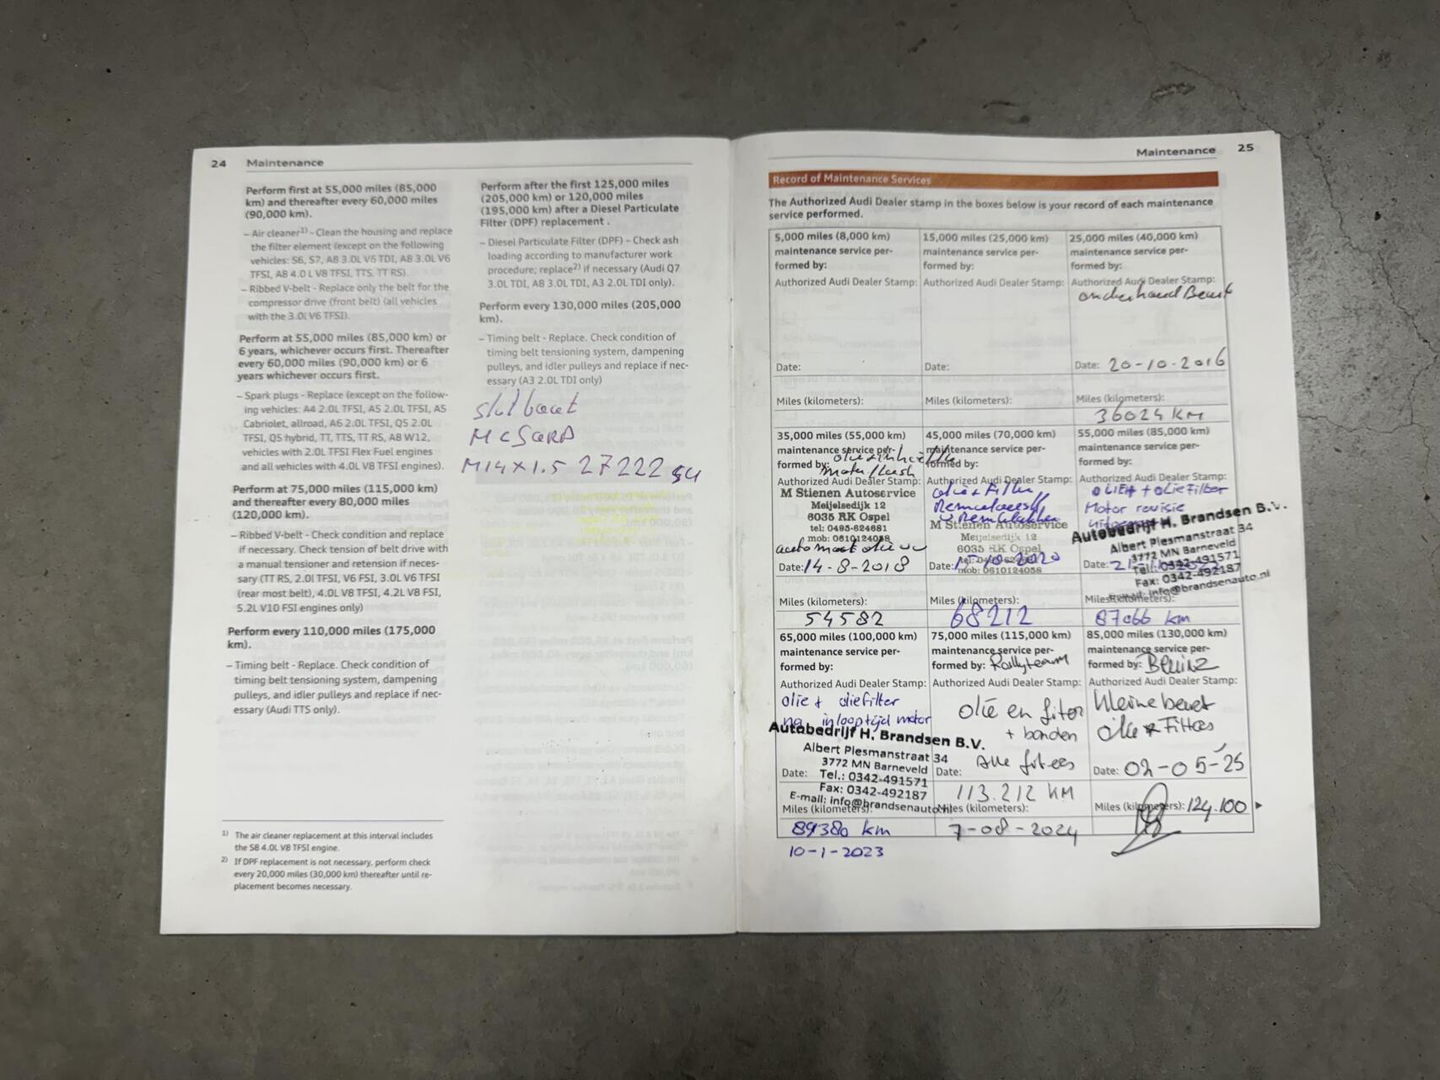 24 Maintenance
Perform first at 55,000 miles (85,000
km) and thereafter every 60,000 miles
(90,000 km).
– Air cleaner¹⁾ - Clean the housing and replace
the filter element (except on the following
vehicles: S6, S7, A8 3.0L V6 TDI, A8 3.0L V6
TFSI, A8 4.0 L V8 TFSI, TTS, TT RS).
– Ribbed V-belt - Replace only the belt for the
compressor drive (front belt) (all vehicles
with the 3.0l V6 TFSI).
Perform at 55,000 miles (85,000 km) or
6 years, whichever occurs first. Thereafter
every 60,000 miles (90,000 km) or 6
years whichever occurs first.
– Spark plugs - Replace (except on the follow-
ing vehicles: A4 2.0L TFSI, A5 2.0L TFSI, A5
Cabriolet, allroad, A6 2.0L TFSI, Q5 2.0L
TFSI, Q5 hybrid, TT, TTS, TT RS, A8 W12,
vehicles with 2.0L TFSI Flex Fuel engines
and all vehicles with 4.0L V8 TFSI engines).
Perform at 75,000 miles (115,000 km)
and thereafter every 80,000 miles
(120,000 km).
– Ribbed V-belt - Check condition and replace
if necessary. Check tension of belt drive with
a manual tensioner and retension if neces-
sary (TT RS, 2.0l TFSI, V6 FSI, 3.0L V6 TFSI
(rear most belt), 4.0L V8 TFSI, 4.2L V8 FSI,
5.2L V10 FSI engines only)
Perform every 110,000 miles (175,000
km).
– Timing belt - Replace. Check condition of
timing belt tensioning system, dampening
pulleys, and idler pulleys and replace if nec-
essary (Audi TTS only).
1) The air cleaner replacement at this interval includes
the S8 4.0L V8 TFSI engine.
2) If DPF replacement is not necessary, perform check
every 20,000 miles (30,000 km) thereafter until re-
placement becomes necessary.
Perform after the first 125,000 miles
(205,000 km) or 120,000 miles
(195,000 km) after a Diesel Particulate
Filter (DPF) replacement .
– Diesel Particulate Filter (DPF) – Check ash
loading according to manufacturer work
procedure; replace²⁾ if necessary (Audi Q7
3.0L TDI, A8 3.0L TDI, A3 2.0L TDI only).
Perform every 130,000 miles (205,000
km).
– Timing belt - Replace. Check condition of
timing belt tensioning system, dampening
pulleys, and idler pulleys and replace if nec-
essary (A3 2.0L TDI only)
McGard
M14x1.5 27222 SU
Maintenance 25
Record of Maintenance Services
The Authorized Audi Dealer stamp in the boxes below is your record of each maintenance
service performed.
5,000 miles (8,000 km)
maintenance service per-
formed by:
Authorized Audi Dealer Stamp:
Date:
Miles (kilometers):
15,000 miles (25,000 km)
maintenance service per-
formed by:
Authorized Audi Dealer Stamp:
Date:
Miles (kilometers):
25,000 miles (40,000 km)
maintenance service per-
formed by:
Authorized Audi Dealer Stamp:
onderhoud Beurt
Date: 20-10-2016
Miles (kilometers):
36024 KM
35,000 miles (55,000 km)
maintenance service per-
formed by:
Authorized Audi Dealer Stamp:
M Stienen Autoservice
Meijelsedijk 12
6035 RK Ospel
tel: 0495-624681
mob: 0610124058
Date: 14-8-2018
Miles (kilometers):
54582
45,000 miles (70,000 km)
maintenance service per-
formed by:
Authorized Audi Dealer Stamp:
olie + Filter
M Stienen Autoservice
Meijelsedijk 12
6035 RK Ospel
mob: 0610124058
Date: 15-10-2020
Miles (kilometers):
68212
55,000 miles (85,000 km)
maintenance service per-
formed by:
Authorized Audi Dealer Stamp:
olie + olie Filter
Motor revisie
Autobedrijf H. Brandsen B.V.
Albert Plesmanstraat 34
3772 MN Barneveld
Tel.: 0342-491571
Fax: 0342-492187
E-mail: info@brandsenauto.nl
Date:
Miles (kilometers):
87066 km
65,000 miles (100,000 km)
maintenance service per-
formed by:
Authorized Audi Dealer Stamp:
olie + oliefilter
na inlooptijd motor
Autobedrijf H. Brandsen B.V.
Albert Plesmanstraat 34
3772 MN Barneveld
Tel.: 0342-491571
Fax: 0342-492187
E-mail: info@brandsenauto.nl
Date:
Miles (kilometers):
89380 km
10-1-2023
75,000 miles (115,000 km)
maintenance service per-
formed by: Rallyteam
Authorized Audi Dealer Stamp:
olie en filter
+ banden
Alle filters
Date:
113.212 KM
Miles (kilometers):
7-08-2024
85,000 miles (130,000 km)
maintenance service per-
formed by:
Authorized Audi Dealer Stamp:
kleine beurt
olie + Filters
Date: 02-05-25
Miles (kilometers): 124.100